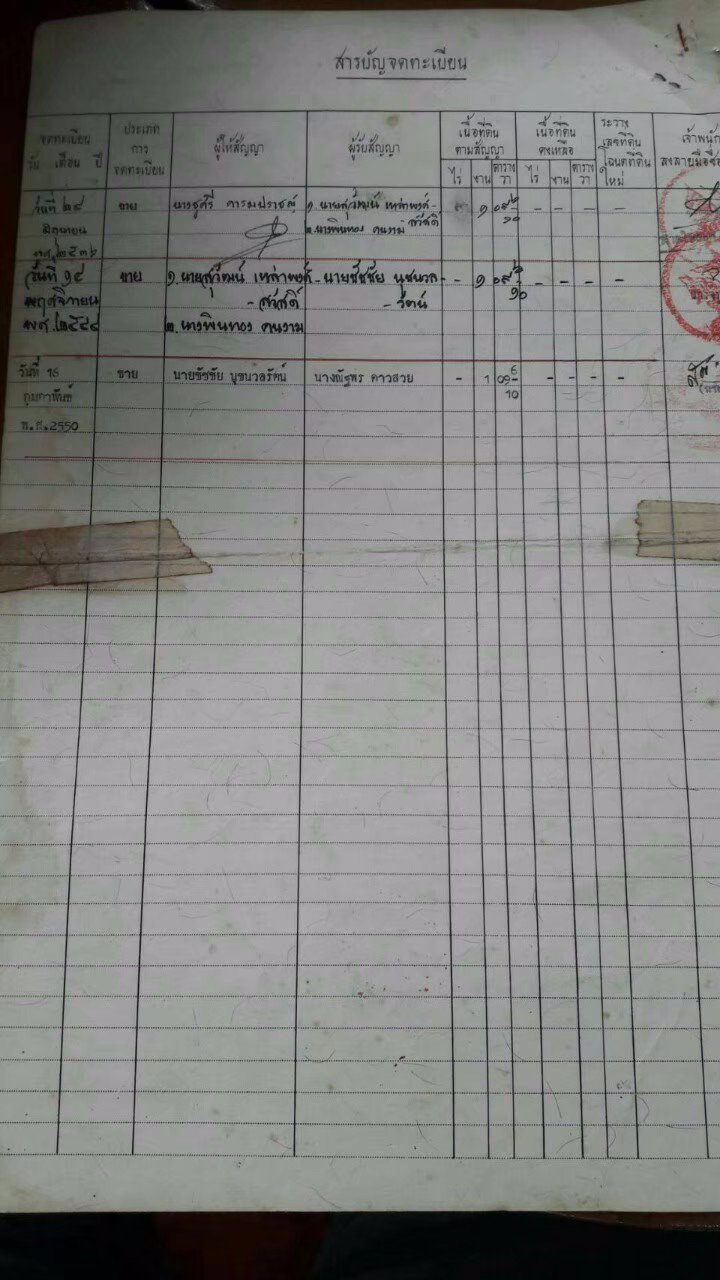 สารบัญจดทะเบียน
จดทะเบียน
วัน เดือน ปี
ประเภท
การ
จดทะเบียน
ผู้ให้สัญญา
ผู้รับสัญญา
เนื้อที่ดิน
ตามสัญญา
ไร่ งาน ตาราง
วา
เนื้อที่ดิน
คงเหลือ
ไร่ งาน ตาราง
วา
ระวาง
เลขที่ดิน
โฉนดที่ดิน
ใหม่
เจ้าพนัก
ลงลายมือชื่อ
วันที่ ๒๙ ขาย นางชูศรี ๑. นายสุวัฒน์ เหล่าพงศ์-
- สวัสดิ์
มิถุนายน ๒. นางพินทอง คนงาม
พ.ศ. ๒๕๓๖
- ๑ ๐๙ ๖/๑๐ - - - -
วันที่ ๑๙ ขาย ๑. นายสุวัฒน์ เหล่าพงศ์- นายชัชชัย นุชนวล- - ๑ ๐๙ ๖/๑๐ - - - -
พฤศจิกายน - สวัสดิ์ - รัตน์
พ.ศ. ๒๕๔๔ ๒. นางพินทอง คนงาม
วันที่ 16 ขาย นายชัชชัย นุชนวลรัตน์ นางณัฐพร ดาวสวย - 1 09 6/10 - - - -
กุมภาพันธ์
พ.ศ.2550